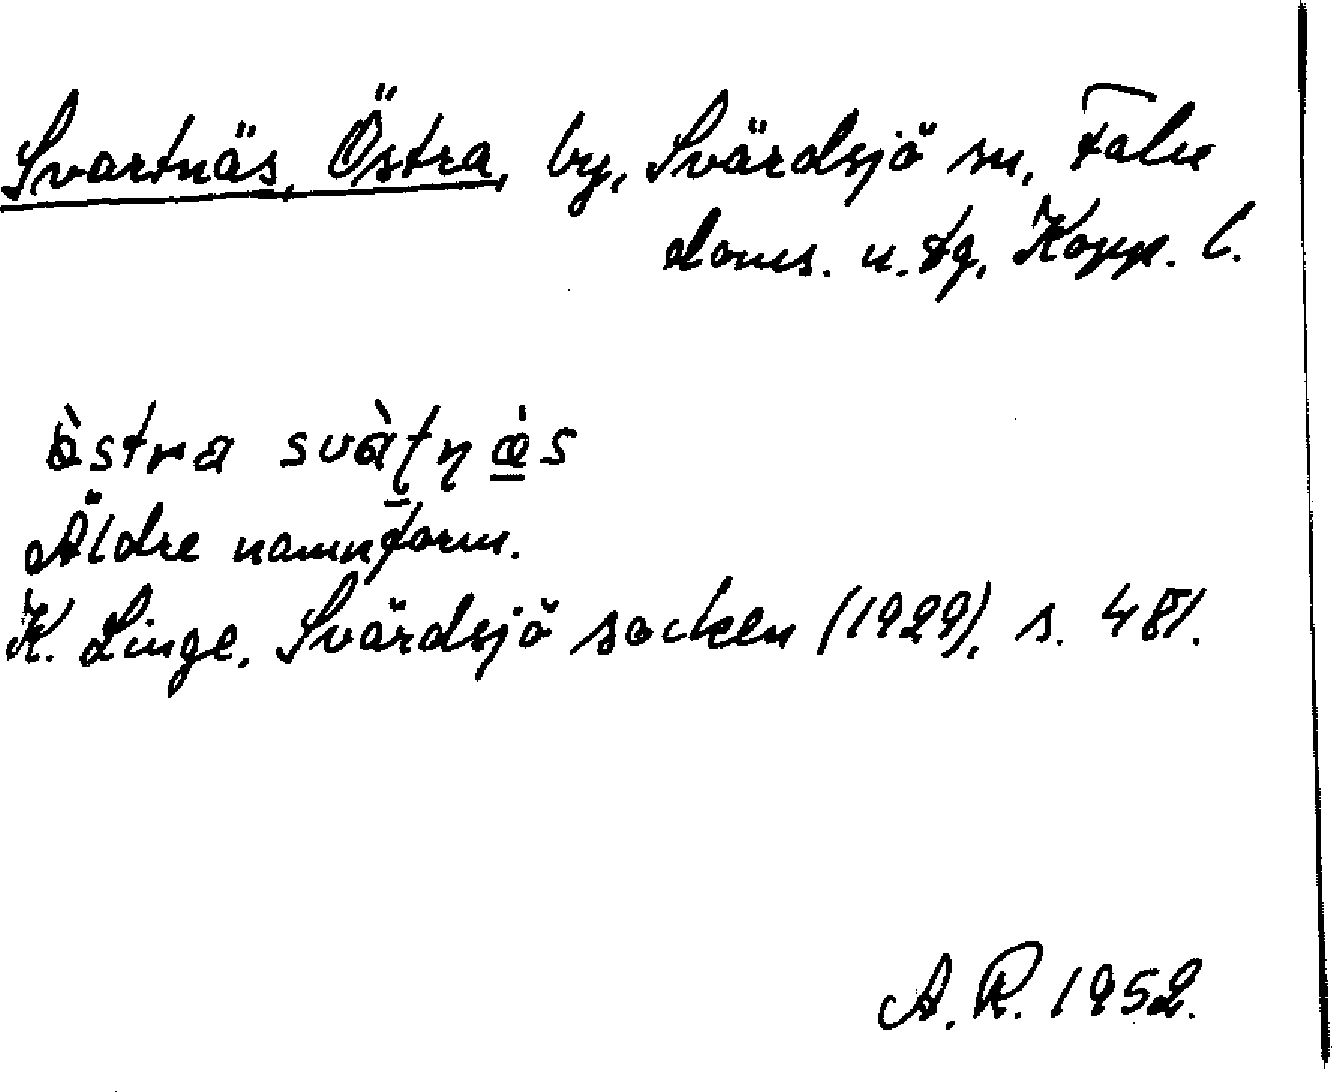 Svartnäs, Östra, by, Svärdsjö sn, Falu
doms. n. tg, Kopp. l.
ꞷ̀stra svàʈɳæ̀s
Äldre namnform.
K. Linge, Svärdsjö socken (1929), s. 481.
A. R. 1952.